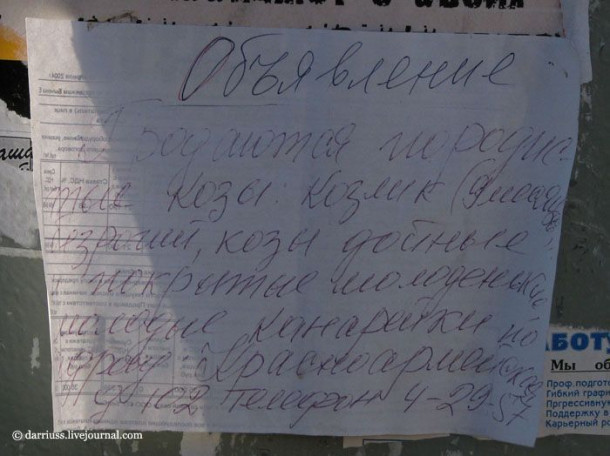 Объявление
Продаются породис-
тые козы: козлик (9 месяцев)
козы дойные
покрытые молоденькие
молодые канарейки по
адресу: Красноармейская
д 102 Телефон 4-29-57
БОТУ
Мы об
Проф.подгото
Гибкий графи
Прогрессивную
Поддержку в
Карьерный ро
© darriuss.livejournal.com